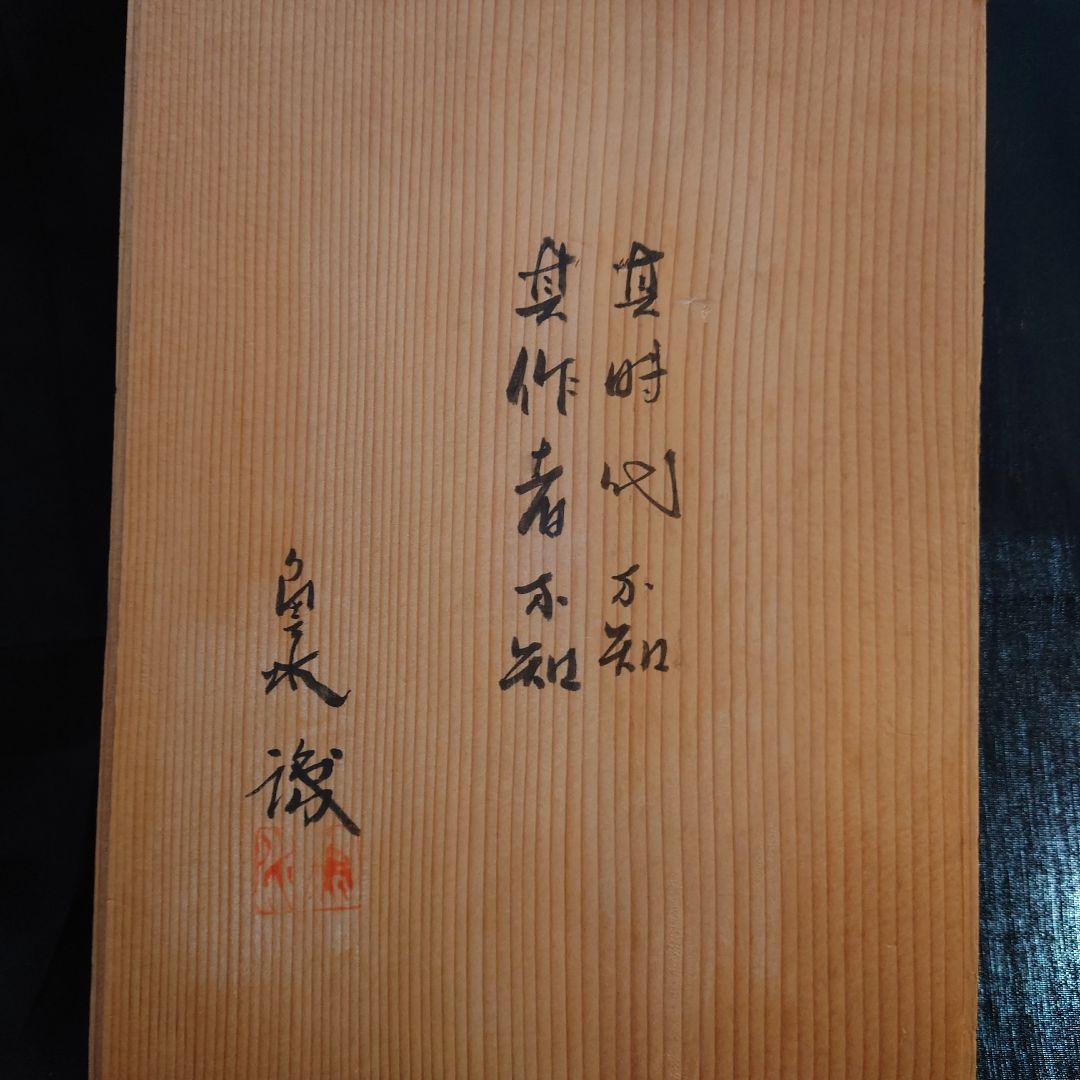 其時代不知
其作者不知
識